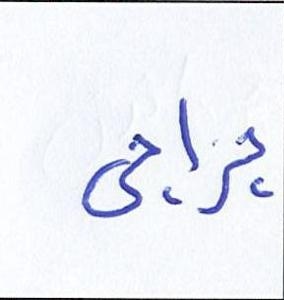 جراجی